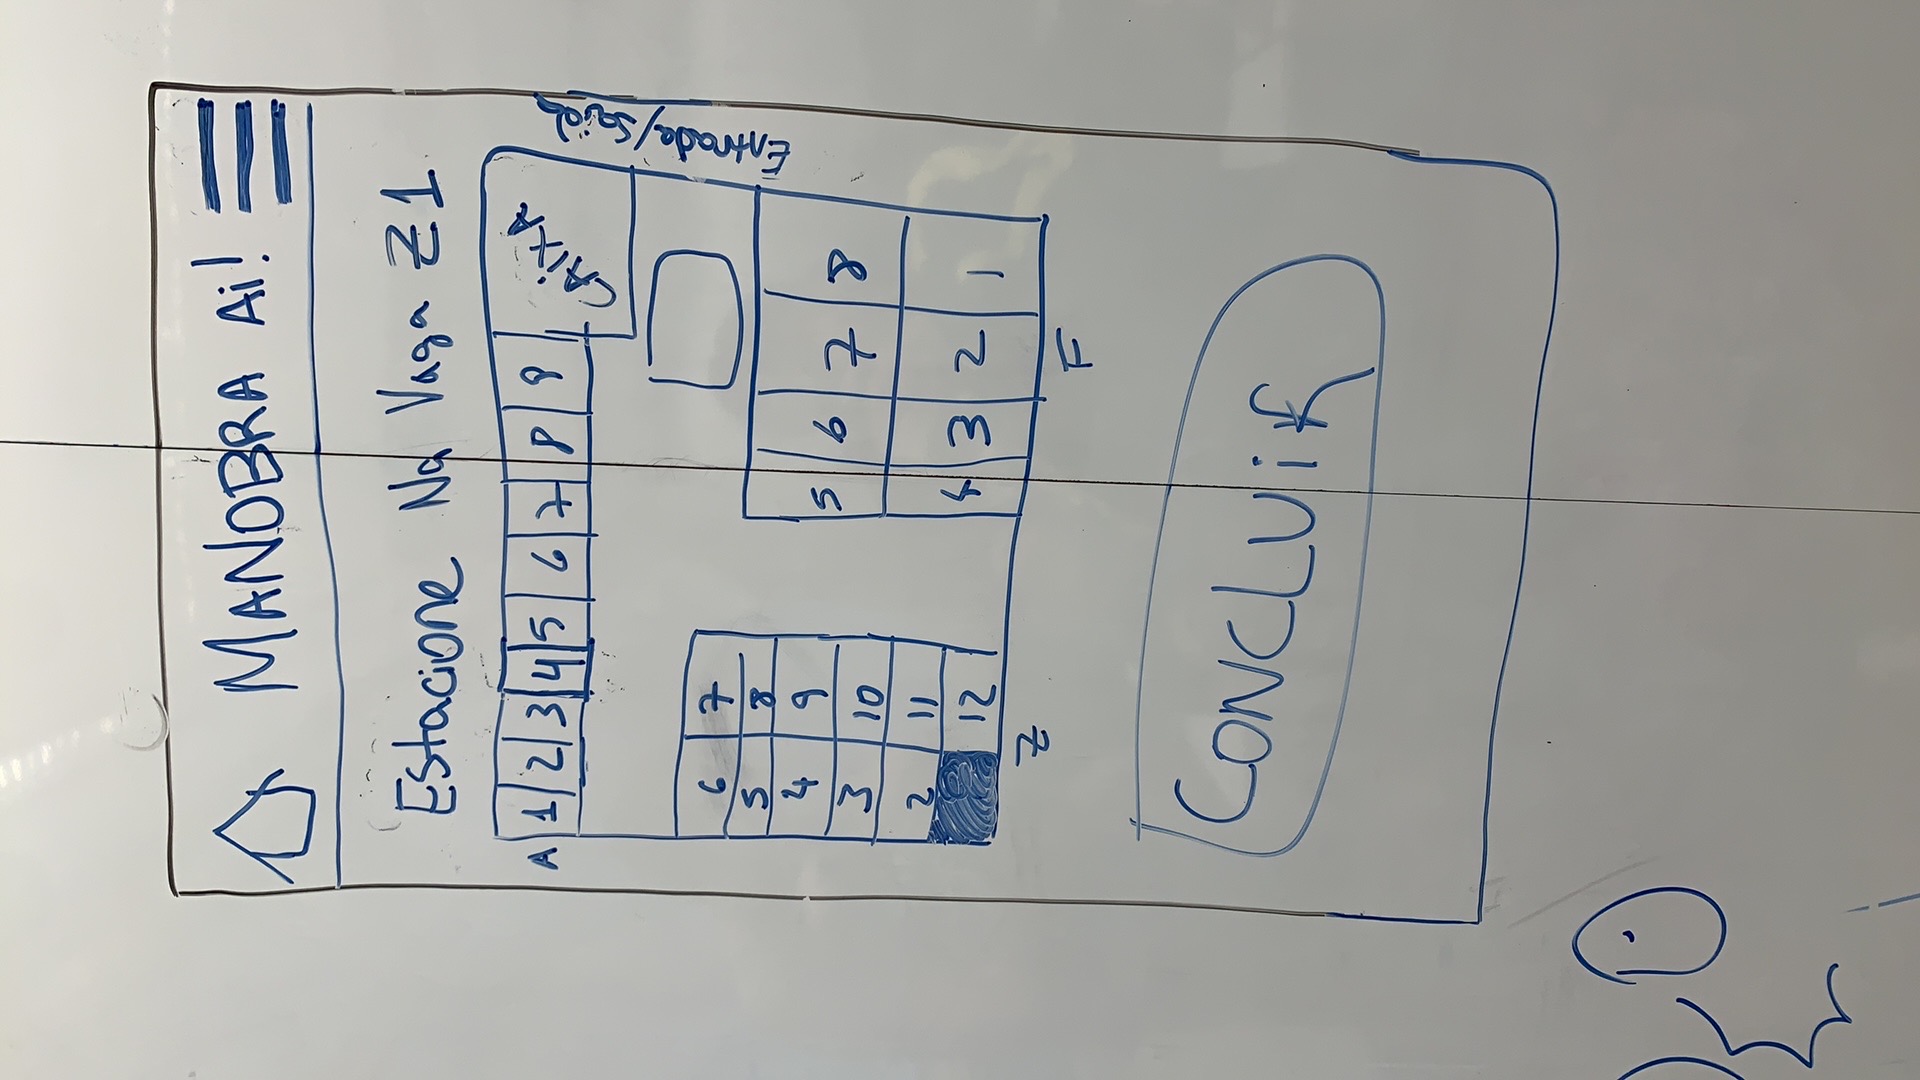 MANOBRA Ai!
Estacione Na Vaga Z1
A 1 2 3 4 5 6 7 8 9 CAiXA
Entrada/Saida
6 7
5 8
4 9
3 10
2 11
12
Z
5 6 7 8
4 3 2 1
F
CONCLUiR